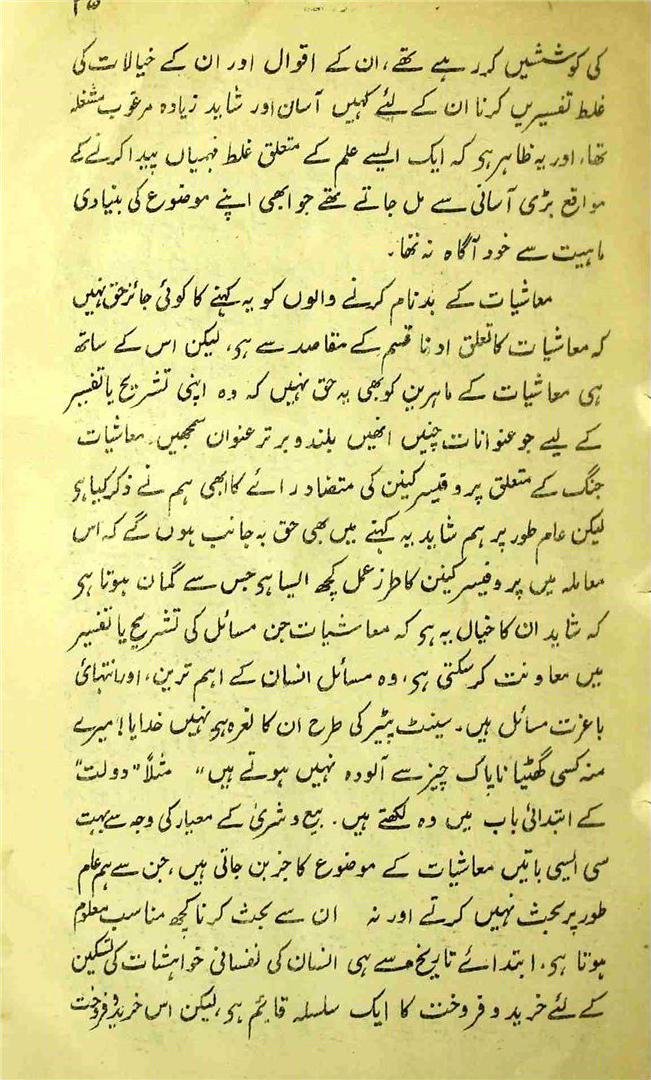 کی کوششیں کر رہے تھے، ان کے اقوال اور ان کے خیالات کی
غلط تفسیریں کرنا ان کے لئے کہیں آسان اور شاید زیادہ مرغوب مشغلہ
تھا، اور یہ ظاہر ہی کہ ایک ایسے علم کے متعلق غلط فہمیاں پیدا کرنے کے
مواقع بڑی آسانی سے مل جاتے تھے جو ابھی اپنے موضوع کی بنیادی
ماہیت سے خود آگاہ نہ تھا۔
معاشیات کے بدنام کرنے والوں کو یہ کہنے کا کوئی جائز حق نہیں
کہ معاشیات کا تعلق ادنا قسم کے مقاصد سے ہی، لیکن اس کے ساتھ
ہی معاشیات کے ماہرین کو بھی یہ حق نہیں کہ وہ اپنی تشریح یا تفسیر
کے لیے جو عنوانات چنیں انھیں بلند و برتر عنوان سمجھیں۔ معاشیات
جنگ کے متعلق پروفیسر کینن کی متضاد رائے کا ابھی ہم نے ذکر کیا ہی
لیکن عام طور پر ہم شاید یہ کہنے میں بھی حق بہ جانب ہوں گے کہ اس
معاملہ میں پروفیسر کینن کا طرز عمل کچھ ایسا ہی جس سے گمان ہوتا ہی
کہ شاید ان کا خیال یہ ہی کہ معاشیات جن مسائل کی تشریح یا تفسیر
میں معاونت کر سکتی ہی، وہ مسائل انسان کے اہم ترین، اور انتہائی
باعزت مسائل ہیں۔ سینٹ پیٹر کی طرح ان کا نعرہ ہی نہیں خدایا! میرے
منہ کسی گھٹیا ناپاک چیز سے آلودہ نہیں ہوتے ہیں" مثلاً "دولت"
کے ابتدائی باب میں وہ لکھتے ہیں۔ بیع و شریٰ کے معیار کی وجہ سے بہت
سی ایسی باتیں معاشیات کے موضوع کا جز بن جاتی ہیں، جن سے ہم عام
طور پر بحث نہیں کرتے اور نہ ان سے بحث کرنا کچھ مناسب معلوم
ہوتا ہی، ابتدائے تاریخ سے ہی انسان کی نفسانی خواہشات کی تسکین
کے لئے خرید و فروخت کا ایک سلسلہ قائم ہی، لیکن اس خرید و فروخت